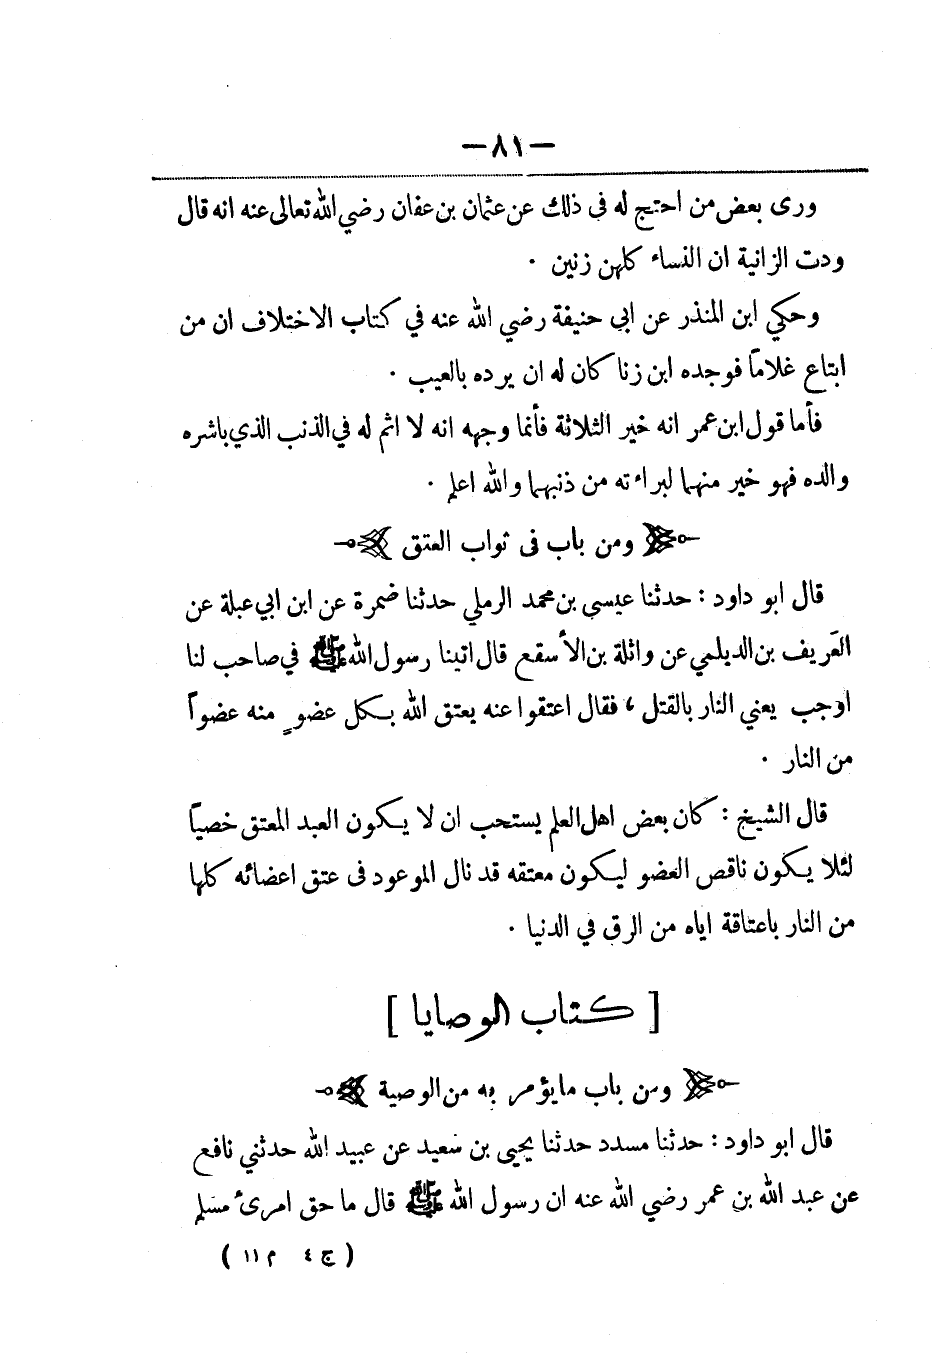 — ٨١ —
ورى بعض من احتج له في ذلك عن عثمان بن عفان رضي الله تعالى عنه انه قال
ودت الزانية ان النساء كلهن زنين .
وحكي ابن المنذر عن ابي حنيفة رضي الله عنه في كتاب الاختلاف ان من
ابتاع غلاماً فوجده ابن زنا كان له ان يرده بالعيب .
فأما قول ابن عمر انه خير الثلاثة فأنما وجهه انه لا اثم له في الذنب الذي باشره
والده فهو خير منهما لبراءته من ذنبهما والله اعلم .
ومن باب في ثواب العتق
قال ابو داود : حدثنا عيسى بن محمد الرملي حدثنا ضمرة عن ابن ابي عبلة عن
العَريف بن الديلمي عن واثلة بن الأسقع قال اتينا رسول الله ﷺ في صاحب لنا
اوجب يعني النار بالقتل ، فقال اعتقوا عنه يعتق الله بكل عضوٍ منه عضواً
من النار .
قال الشيخ : كان بعض اهل العلم يستحب ان لا يكون العبد المعتق خصياً
لئلا يكون ناقص العضو ليكون معتقه قد نال الموعود في عتق اعضائه كلها
من النار باعتاقة اياه من الرق في الدنيا .
[ كتاب الوصايا ]
ومن باب ما يؤمر به من الوصية
قال ابو داود : حدثنا مسدد حدثنا يحيى بن سعيد عن عبيد الله حدثني نافع
عن عبد الله بن عمر رضي الله عنه ان رسول الله ﷺ قال ما حق امرئ مسلم
( ج ٤ م ١١ )